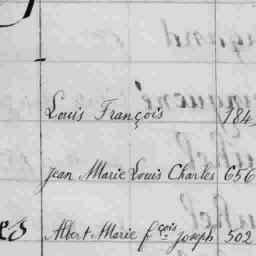 Louis François 784
Jean Marie Louis Charles 656
Albert Marie f.çois Joseph 502